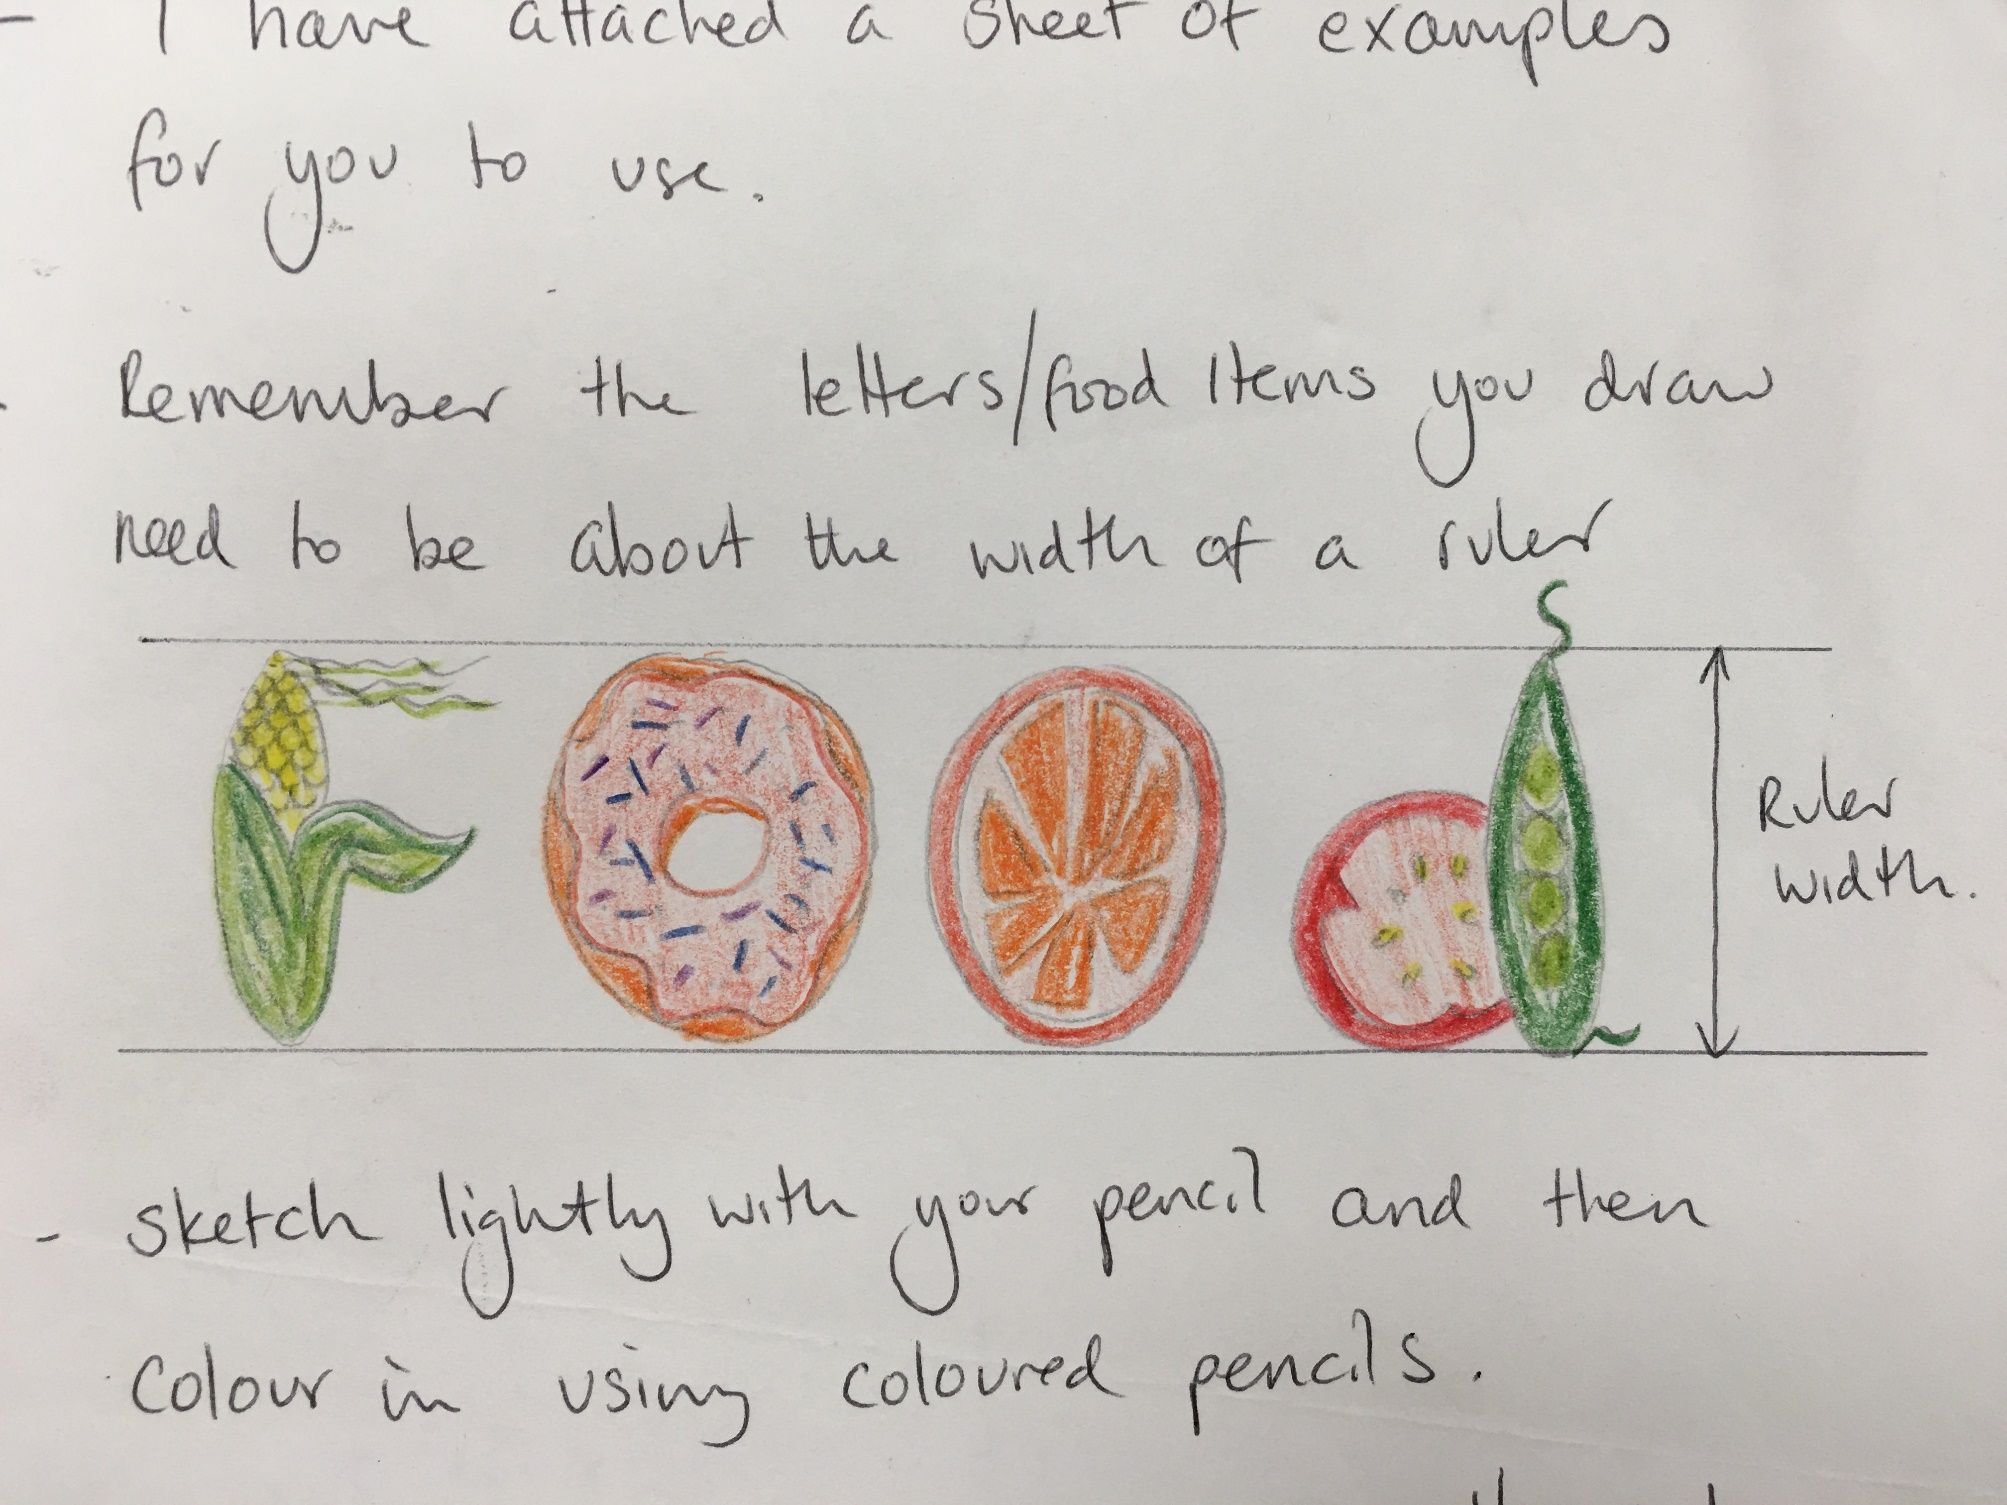 - I have attached a sheet of examples
for you to use.
- Remember the letters/food items you draw
need to be about the width of a ruler
FOOd
Ruler
width.
- sketch lightly with your pencil and then
colour in using coloured pencils.